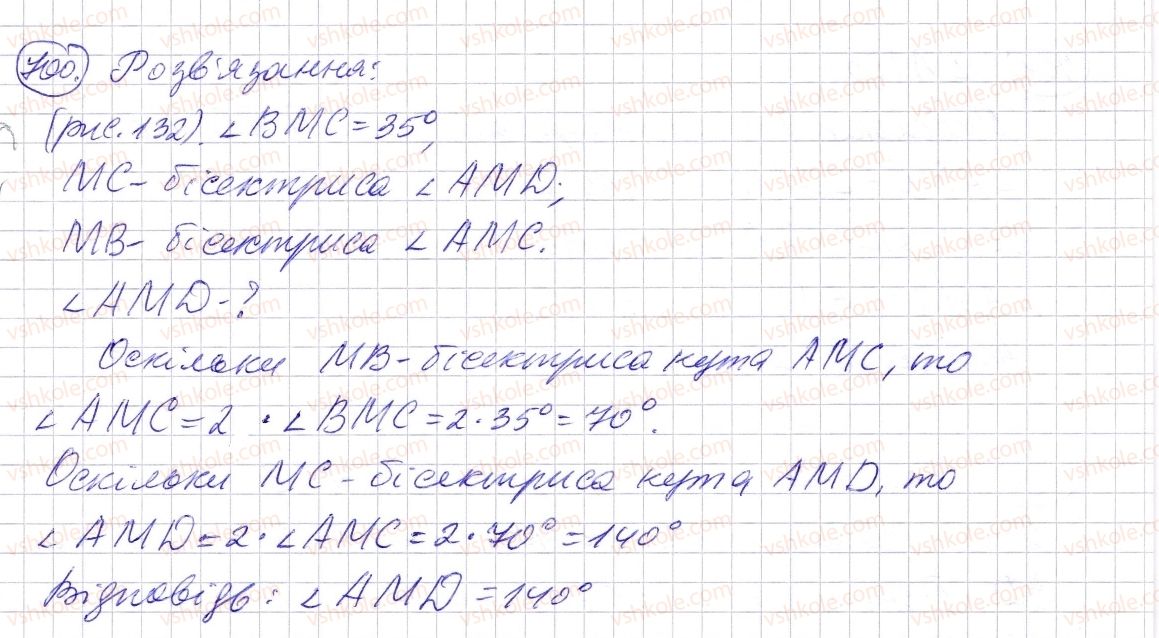 700. Розв'язання:
(рис. 132). ∠BMC = 35°,
MC - бісектриса ∠AMD;
MB - бісектриса ∠AMC.
∠AMD - ?
Оскільки MB - бісектриса кута AMC, то
∠AMC = 2 · ∠BMC = 2 · 35° = 70°.
Оскільки MC - бісектриса кута AMD, то
∠AMD = 2 · ∠AMC = 2 · 70° = 140°
Відповідь: ∠AMD = 140°